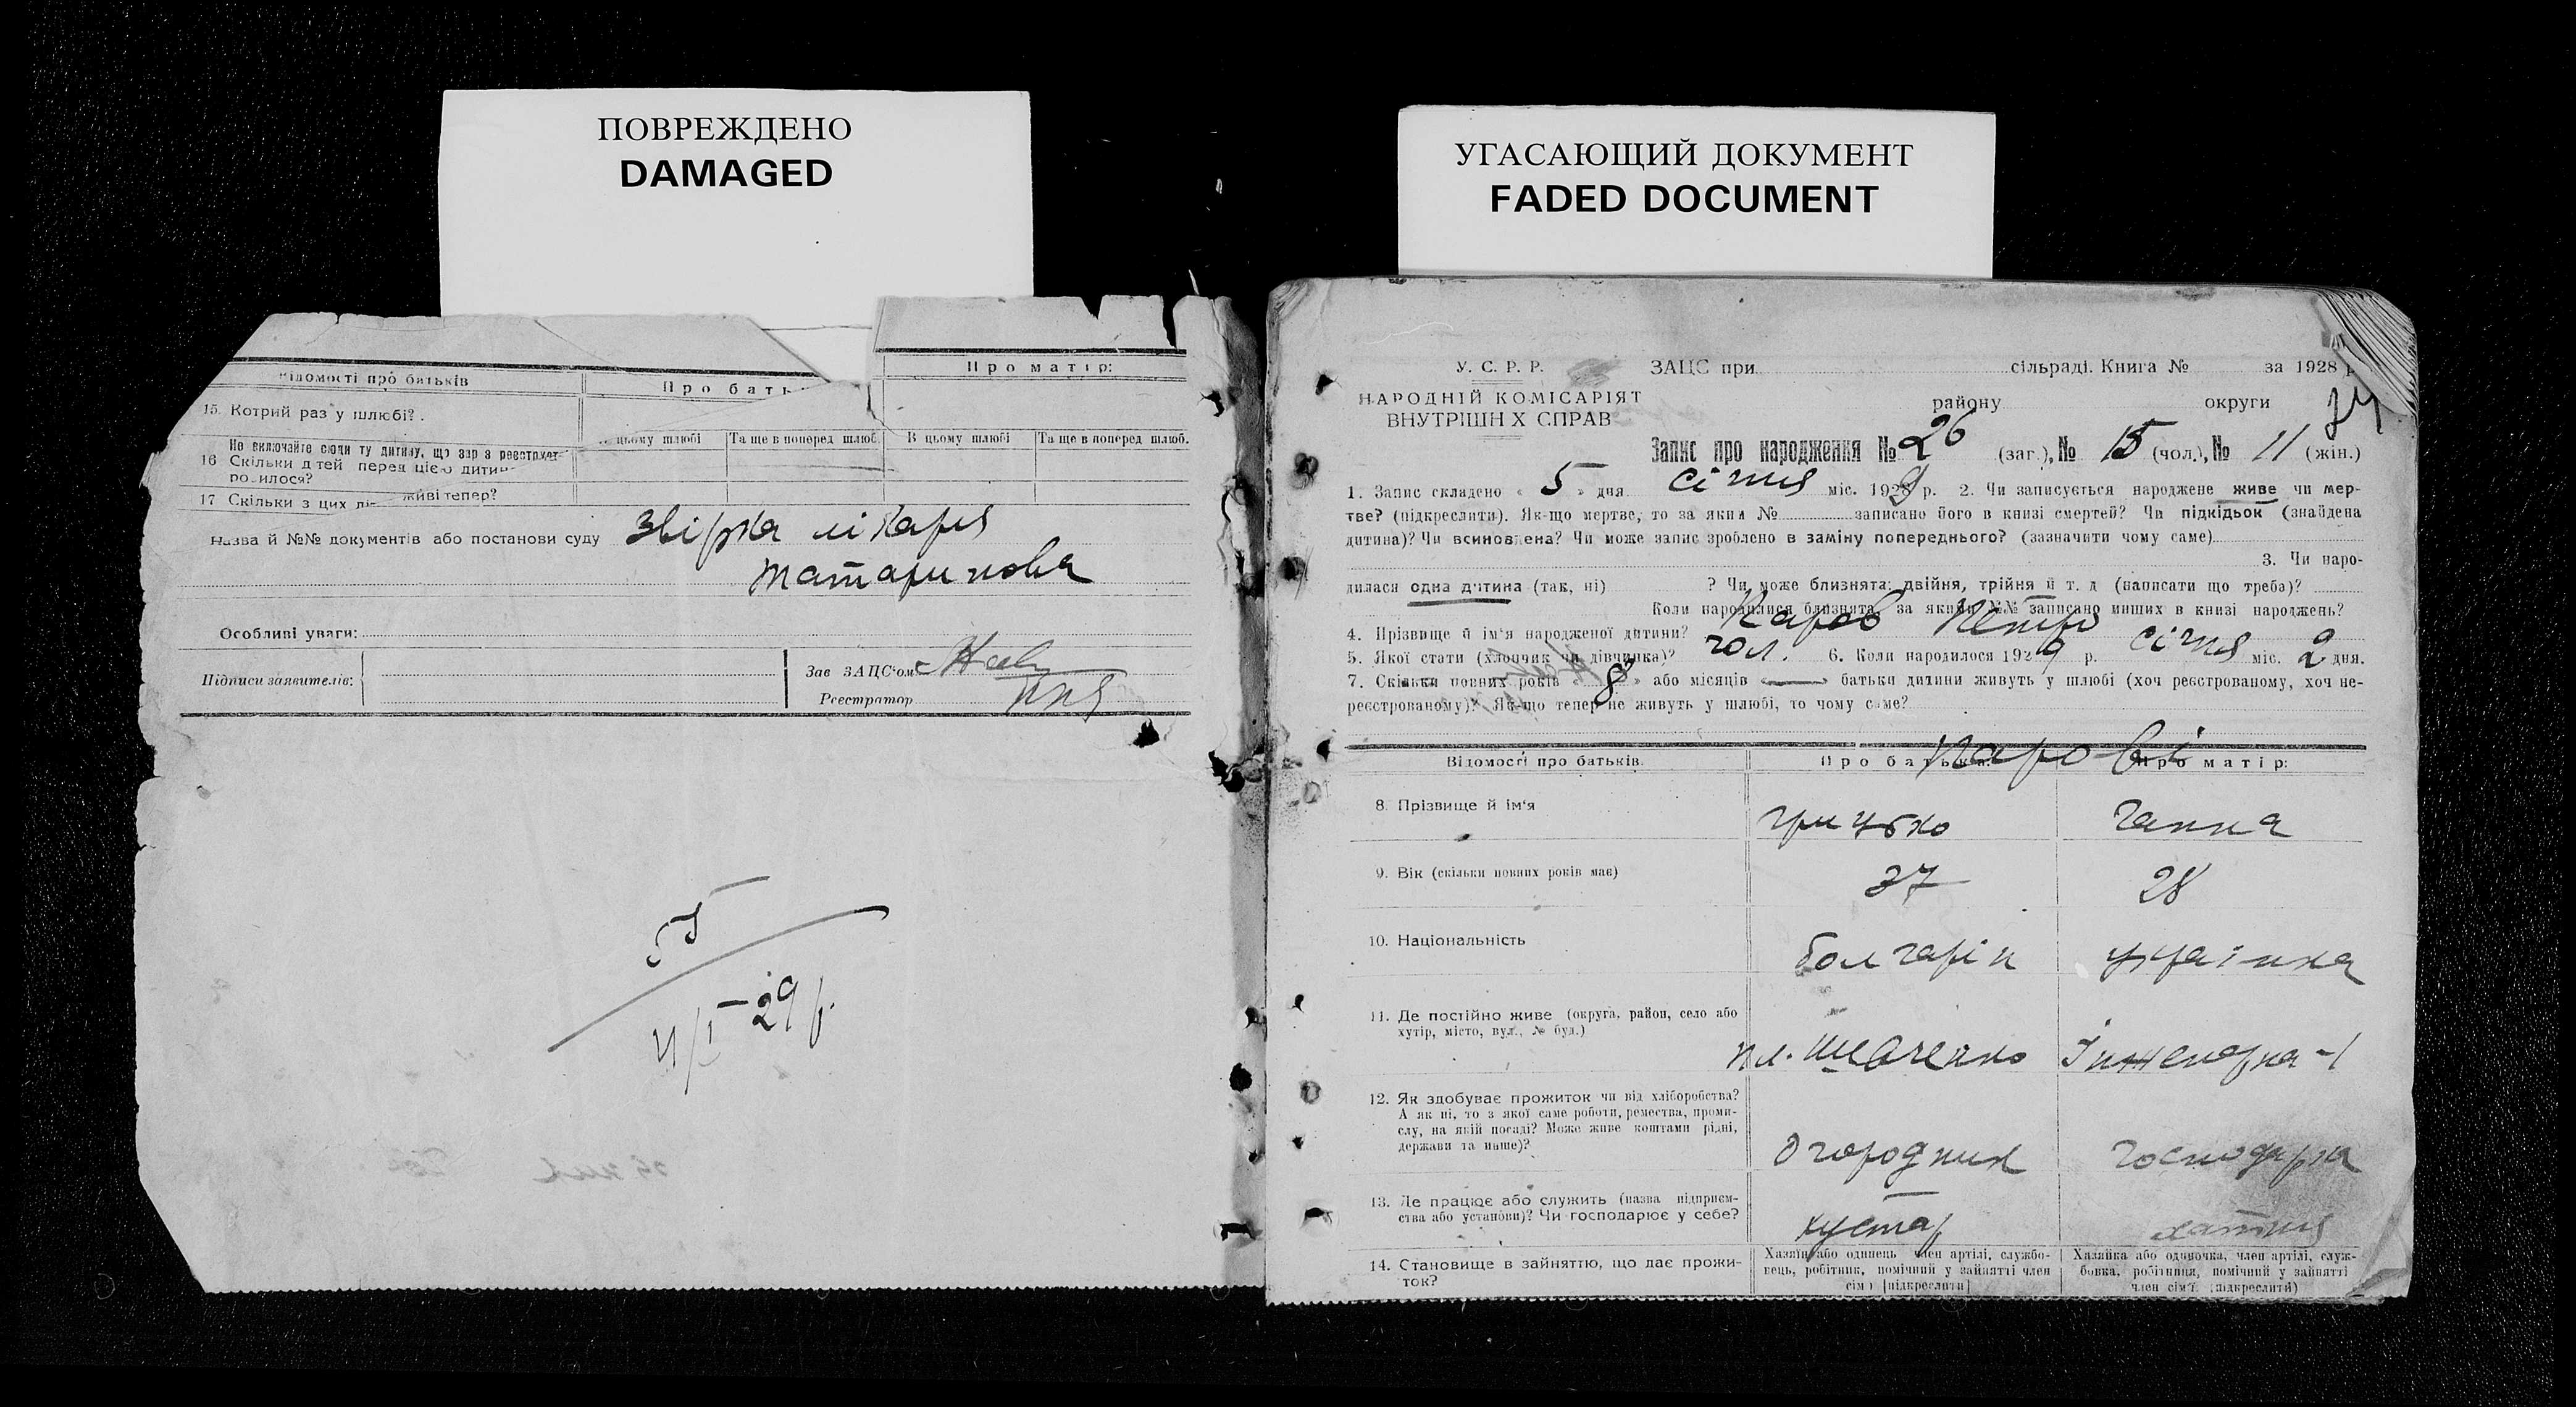 ПОВРЕЖДЕНО
DAMAGED
УГАСАЮЩИЙ ДОКУМЕНТ
FADED DOCUMENT
Відомості про батьків
Про бать
Про матір:
15. Котрий раз у шлюбі?
цьому шлюбі
Та ще в поперед шлюб.
В цьому шлюбі
Та ще в поперед. шлюб.
Не включайте сюди ту дитину, що зар з реєстрюєт
16 Скільки дітей перед цією дитин
родилося?
17 Скільки з цих ді- живі тепер?
Назва й №№ документів або постанови суду звірка лікаря
Татаринова
Особливі уваги:
Підписи заявителів:
Зав ЗАЦС'ом
Реєстратор
5
4/I-29 р.
У. С. Р. Р.
НАРОДНІЙ КОМІСАРІЯТ
ВНУТРІШНІХ СПРАВ
ЗАЦС при сільраді. Книга № за 1928 р
району округи
24
Запис про народження № 26 (заг.), № 15 (чол.), № 11 (жін.)
1. Запис складено « 5 » дня січня міс. 1929 р. 2. Чи записується народжене живе чи мер-
тве? (підкреслити). Як-що мертве, то за яким № записано його в книзі смертей? Чи підкідьок (знайдена
дитина)? Чи всиновлена? Чи може запис зроблено в заміну попереднього? (зазначити чому саме)
3. Чи наро-
дилася одна дитина (так, ні) ? Чи може близнята: двійня, трійня й т. д (написати що треба)?
Коли народилися близнята, за якими №№ записано инших в книзі народжень?
4. Прізвище й ім'я народженої дитини? Каров Петро
5. Якої стати (хлопчик чи дівчинка)? чол. 6. Коли народилося 1929 р. січня міс. 2 дня.
7. Скільки повних років 8 » або місяців « — » батьки дитини живуть у шлюбі (хоч реєстрованому, хоч не-
реєстрованому)? Як-що тепер не живуть у шлюбі, то чому саме?
Відомості про батьків.
Про батька:
Про матір:
Карові
8. Прізвище й ім'я
Грицько
Ганна
9. Вік (скільки повних років має)
37
28
10. Національність
болгарін
українка
11. Де постійно живе (округа, район, село або
хутір, місто, вул., № буд.)
пл. Шевченко
Інженерна-1
12. Як здобуває прожиток чи від хліборобства?
А як ні, то з якої саме роботи, ремества, проми-
слу, на якій посаді? Може живе коштами рідні,
держави та инше)?
Огородник
Господарка
13. Де працює або служить (назва підприєм-
ства або установи)? Чи господарює у себе?
кустар
хатня
14. Становище в зайняттю, що дає прожи-
ток?
Хазяїн або одинець член артілі, службо-
вець, робітник, помічний у зайнятті член
сім'ї [підкреслити]
Хазяйка або одиночка, член артілі, служ-
бовка, робітниця, помічний у зайнятті
член сім'ї (підкреслити)